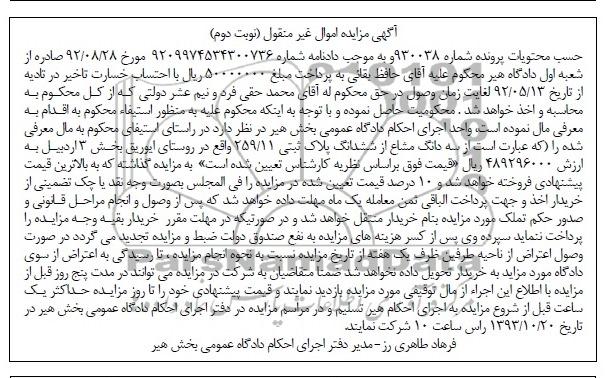 آگهی مزایده اموال غیر منقول (نوبت دوم)
حسب محتویات پرونده شماره ۹۳۰۰۳۸و به موجب دادنامه شماره ۹۲۰۹۹۷۴۵۳۴۳۰۰۷۳۶ مورخ ۹۲/۰۸/۲۸ صادره از
شعبه اول دادگاه هیر محکوم علیه آقای حافظ بقائی به پرداخت مبلغ ۵۰۰۰۰۰۰۰ ریال با احتساب خسارت تاخیر در تادیه
از تاریخ ۹۲/۰۵/۱۳ لغایت زمان وصول در حق محکوم له آقای محمد حقی فرد و نیم عشر دولتی که از کل محکوم به
محاسبه و اخذ خواهد شد . محکومیت حاصل نموده و با توجه به اینکه محکوم علیه به منظور استیفاء محکوم به اقدام به
معرفی مال نموده است، واحد اجرای احکام دادگاه عمومی بخش هیر در نظر دارد در راستای استیفای محکوم به مال معرفی
شده را (که عبارت است از سه دانگ مشاع از ششدانگ پلاک ثبتی ۲۵۹/۱۱ واقع در روستای ایوریق بخش ۳ اردبیل به
ارزش ۴۸۹۲۹۶۰۰۰ ریال «قیمت فوق براساس نظریه کارشناس تعیین شده است» به مزایده گذاشته که به بالاترین قیمت
پیشنهادی فروخته خواهد شد و ۱۰ درصد قیمت تعیین شده در مزایده را فی المجلس بصورت وجه نقد یا چک تضمینی از
خریدار اخذ و جهت پرداخت الباقی ثمن معامله یک ماه مهلت داده خواهد شد که پس از وصول و انجام مراحل قانونی و
صدور حکم تملک مورد مزایده بنام خریدار منتقل خواهد شد و در صورتیکه در مهلت مقرر خریدار بقیه وجه مزایده را
پرداخت ننماید سپرده وی پس از کسر هزینه های مزایده به نفع صندوق دولت ضبط و مزایده تجدید می گردد در صورت
وصول اعتراض از ناحیه طرفین ظرف یک هفته از تاریخ مزایده نسبت به نحوه انجام مزایده ، تا رسیدگی به اعتراض از سوی
دادگاه مورد مزاید به خریدار تحویل داده نخواهد شد ضمنا متقاضیان به شرکت در مزایده می توانند در مدت پنج روز قبل از
مزایده با اطلاع این اجراء از مال توقیفی مورد مزایده بازدید نمایند و قیمت پیشنهادی خود را تا روز مزایده حداکثر یک
ساعت قبل از شروع مزایده به اجرای احکام هیر تسلیم و در مراسم مزایده در دفتر اجرای احکام دادگاه عمومی بخش هیر در
تاریخ ۱۳۹۳/۱۰/۲۰ راس ساعت ۱۰ شرکت نمایند.
فرهاد طاهری رز -مدیر دفتر اجرای احکام دادگاه عمومی بخش هیر